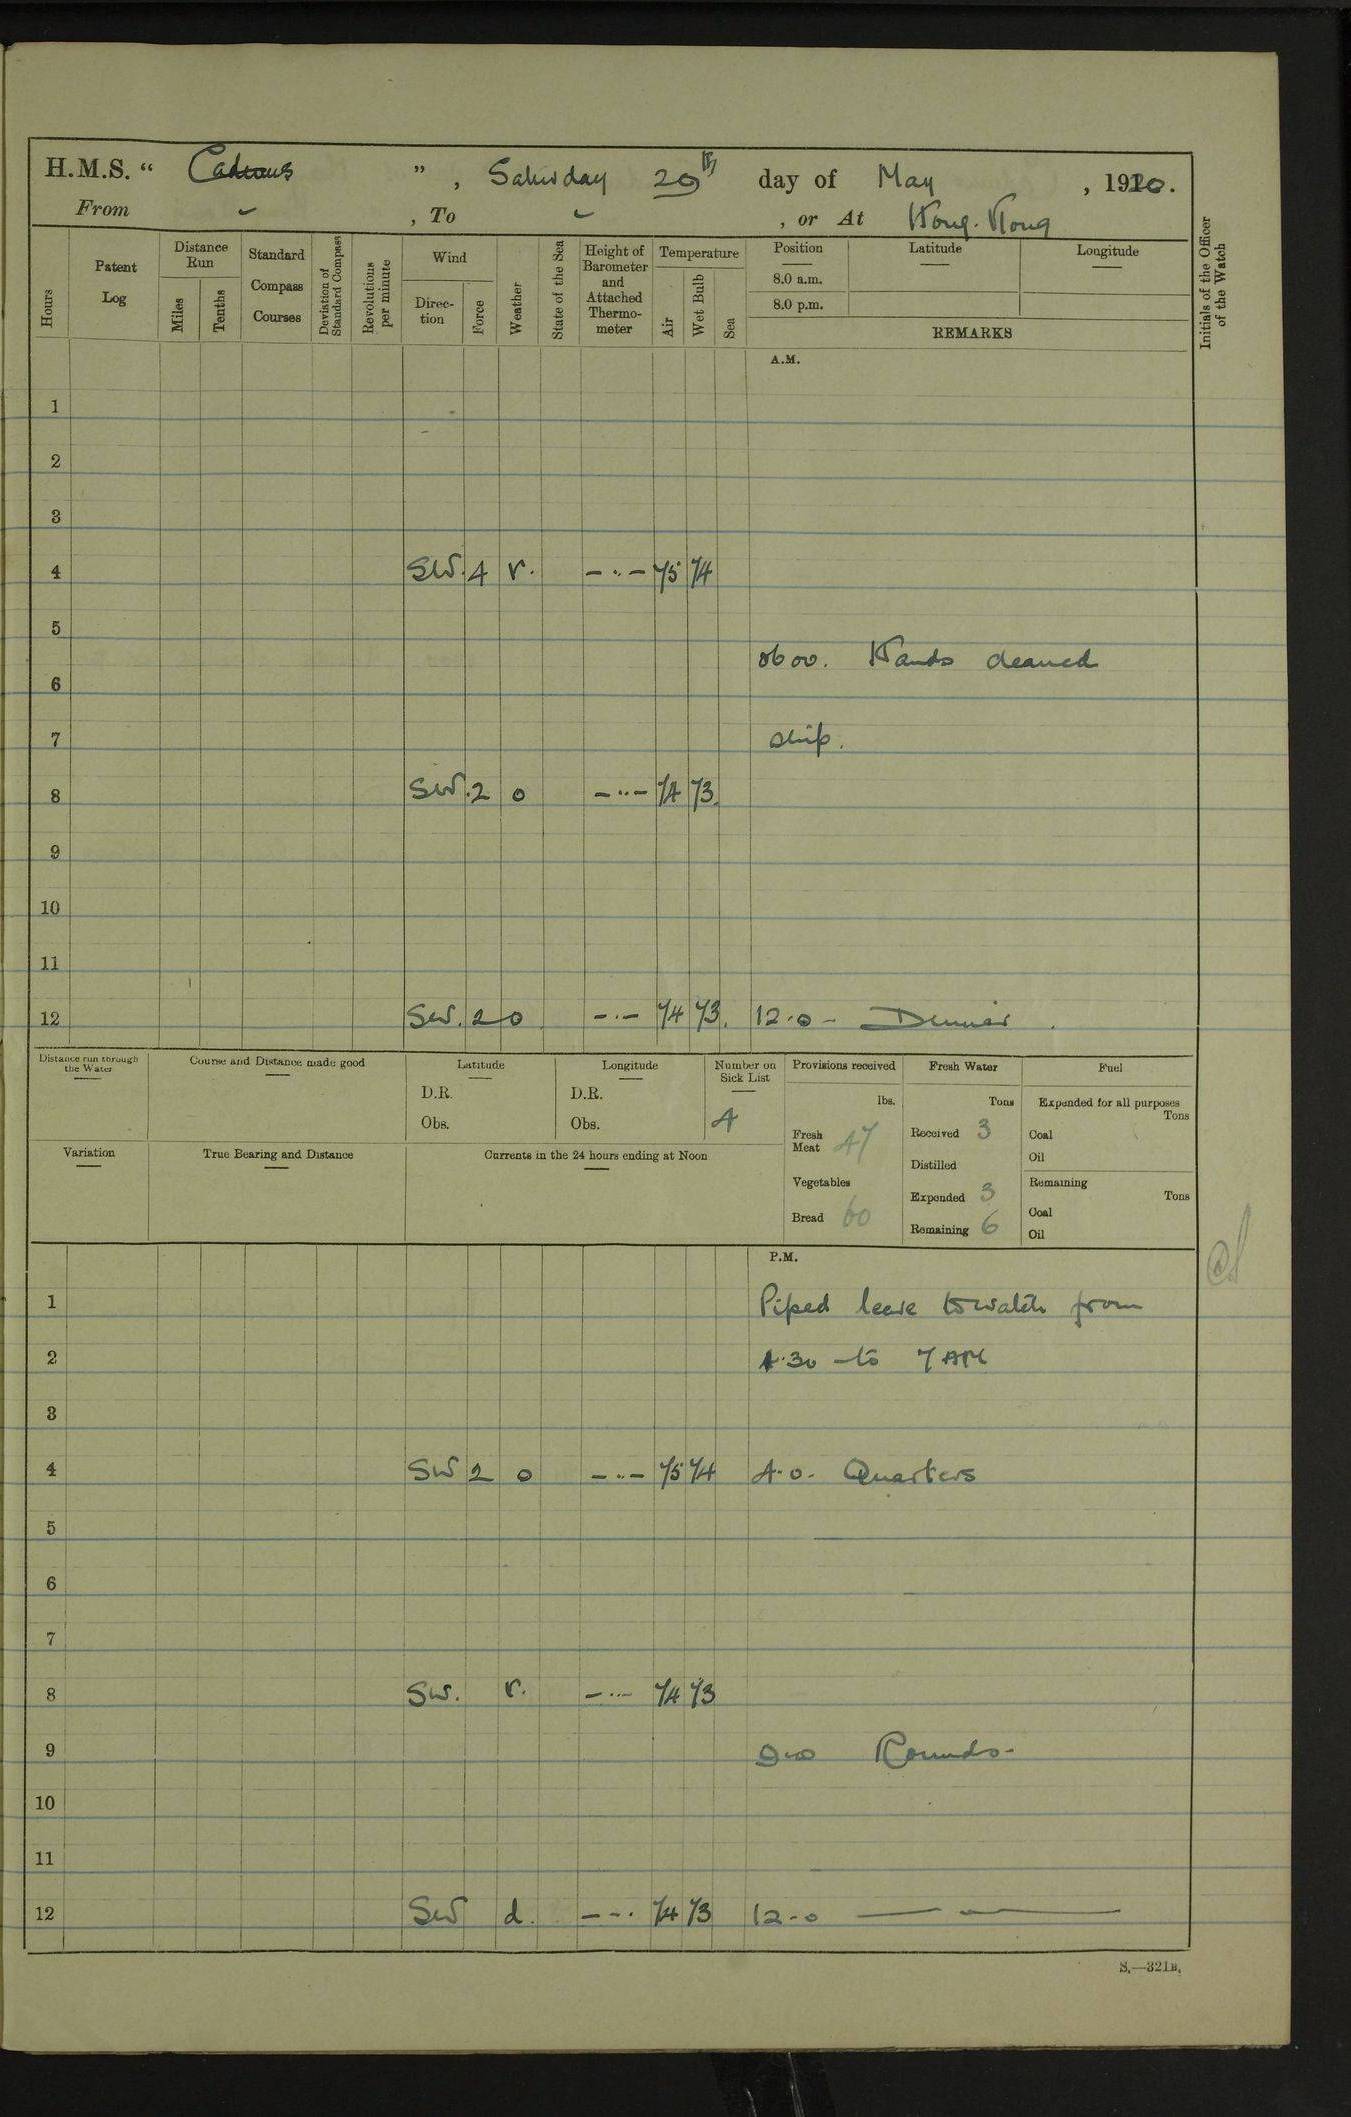 H.M.S. “ Cadmus ” , Saturday 29th day of May , 1920.
From ⌣ , To ⌣ , or At Hong-Kong
Hours
Patent Log
Distance Run
Miles
Tenths
Standard Compass Courses
Deviation of Standard Compass
Revolutions per minute
Wind
Direc-tion
Force
Weather
State of the Sea
Height of Barometer and Attached Thermo-meter
Temperature
Air
Wet Bulb
Sea
Position
Latitude
Longitude
8.0 a.m.
8.0 p.m.
REMARKS
Initials of the Officer of the Watch
A.M.
1
2
3
4 SW. 4 r. -··- 75 74
5
0600. Hands cleaned
6
7 ship.
8 SW. 2 o -··- 74 73.
9
10
11
12 SW. 2 o -·- 74 73. 12·0 - Dinner .
Distance run through the Water
Course and Distance made good
Latitude
D.R.
Obs.
Longitude
D.R.
Obs.
Number on Sick List
4
Provisions received
lbs.
Fresh Meat 47
Vegetables
Bread 60
Fresh Water
Tons
Received 3
Distilled
Expended 3
Remaining 6
Fuel
Expended for all purposes
Tons
Coal
Oil
Remaining
Tons
Coal
Oil
Variation
True Bearing and Distance
Currents in the 24 hours ending at Noon
P.M.
1 Piped leave to watch from
2 4·30 - to 7 AM
3
4 SW 2 o -··- 75 74 4·0- Quarters
5
6
7
8 SW. r. -··- 74 73
9 9-0 Rounds-
10
11
12 SW d. --· 74 73 12-0 —— ——
S.—321B.